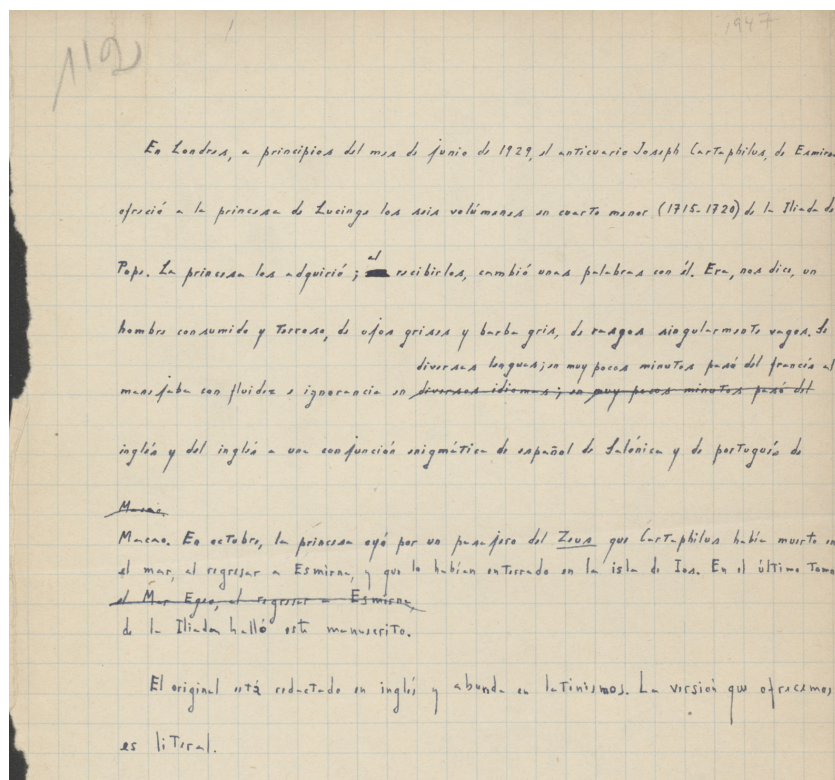 112
1947
En Londres, a principios del mes de junio de 1929, el anticuario Joseph Cartaphilus, de Esmirna
ofreció a la princesa de Lucinge los seis volúmenes en cuarto menor (1715-1720) de la Ilíada de
al
Pope. La princesa los adquirió; recibirlos, cambió unas palabras con él. Era, nos dice, un
hombre consumido y terroso, de ojos grises y barba gris, de rasgos singularmente vagos. Se
diversas lenguas; en muy pocos minutos pasó del francés al
manejaba con fluidez e ignorancia en diversos idiomas; en muy pocos minutos pasó del
inglés y del inglés a una conjunción enigmática de español de Salónica y de portugués de
Macao.
Macao. En octubre, la princesa oyó por un pasajero del Zeus que Cartaphilus había muerto en
el mar, al regresar a Esmirna, y que lo habían enterrado en la isla de Ios. En el último tomo
el Mar Egeo, al regresar a Esmirna,
de la Ilíada halló este manuscrito.
El original está redactado en inglés y abunda en latinismos. La versión que ofrecemos
es literal.